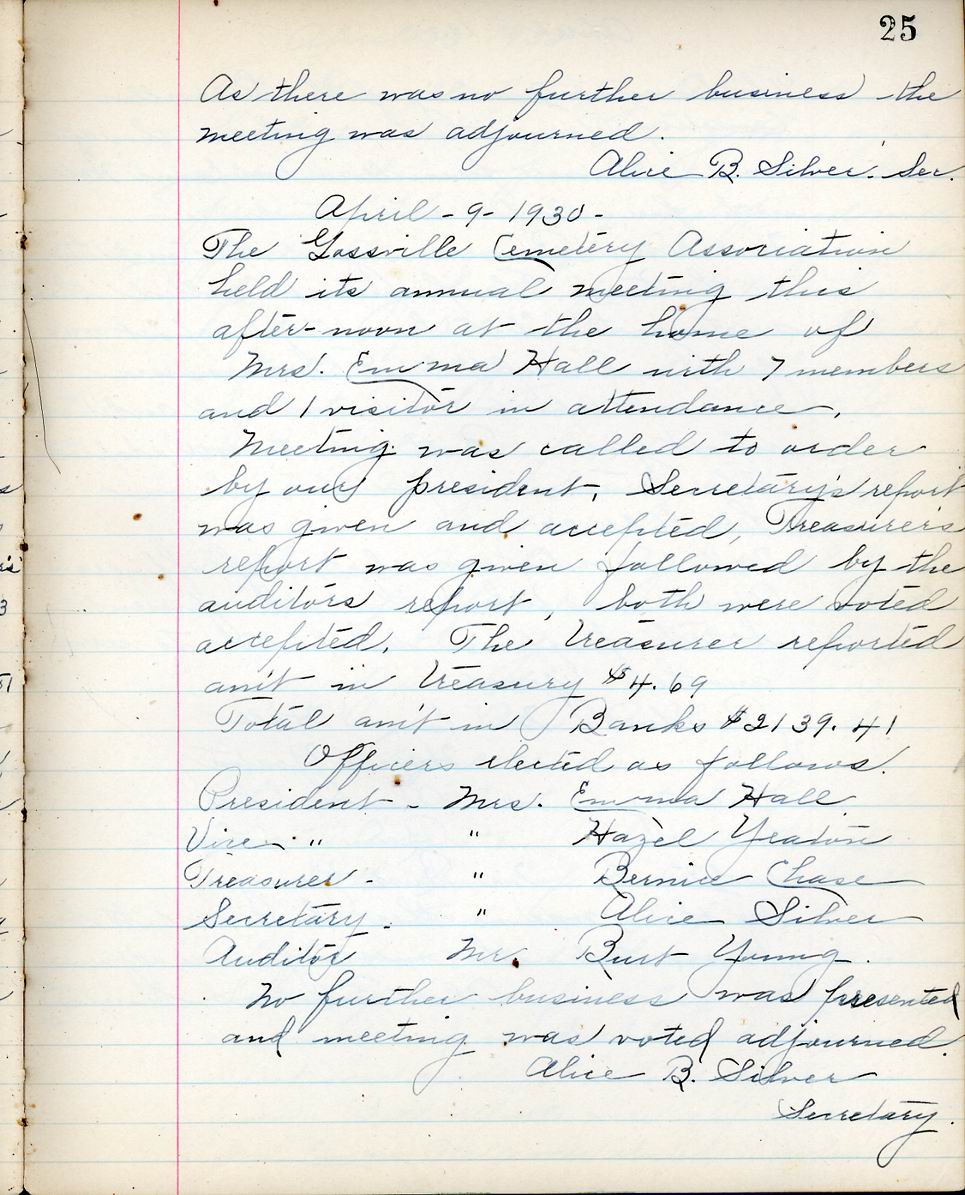 25
As there was no further business the
meeting was adjourned.
Alice B. Silver. Sec.
April - 9 - 1930 -
The Gossville Cemetery Association
held its annual meeting this
after-noon at the home of
Mrs. Emma Hall with 7 members
and 1 visitor in attendance.
Meeting was called to order
by our president, Secretary's report
was given and accepted, Treasurer's
report was given followed by the
auditors report, both were voted
accepted. The treasurer reported
am't in treasury $4.69
Total am't in Banks $2139.41
Officers elected as follows.
President - Mrs. Emma Hall
Vice - " " Hazel Yeaton
Treasurer - " Bernice Chase
Secretary - " Alice Silver
Auditor Mr. Burt Young.
No further business was presented
and meeting was voted adjourned.
Alice B. Silver
Secretary.